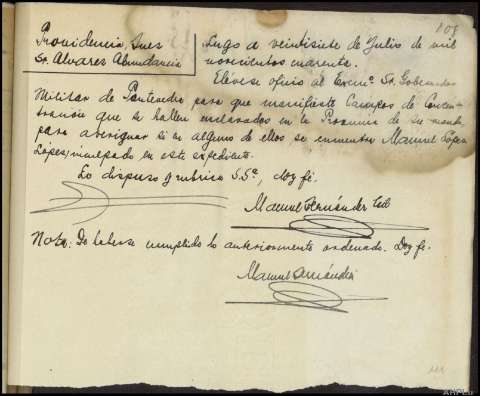 108
Providencia, Juez
Sr. Alvarez Abundancia
Lugo a veintisiete de Julio de mil
novecientos cuarenta.
Elévese oficio al Excmº. Sr. Gobernador
Militar de Pontevedra para que manifieste Campos de Concen-
tración que se hallen enclavados en la Provincia de su mando
para averiguar si en alguno de ellos se encuentra Manuel López
López, inculpado en este expediente.
Lo dispuso y rubrica S.Sª, doy fé.
Manuel Fernández
Nota: De haberse cumplido lo anteriormente ordenado. Doy fe.
Manuel Fernández